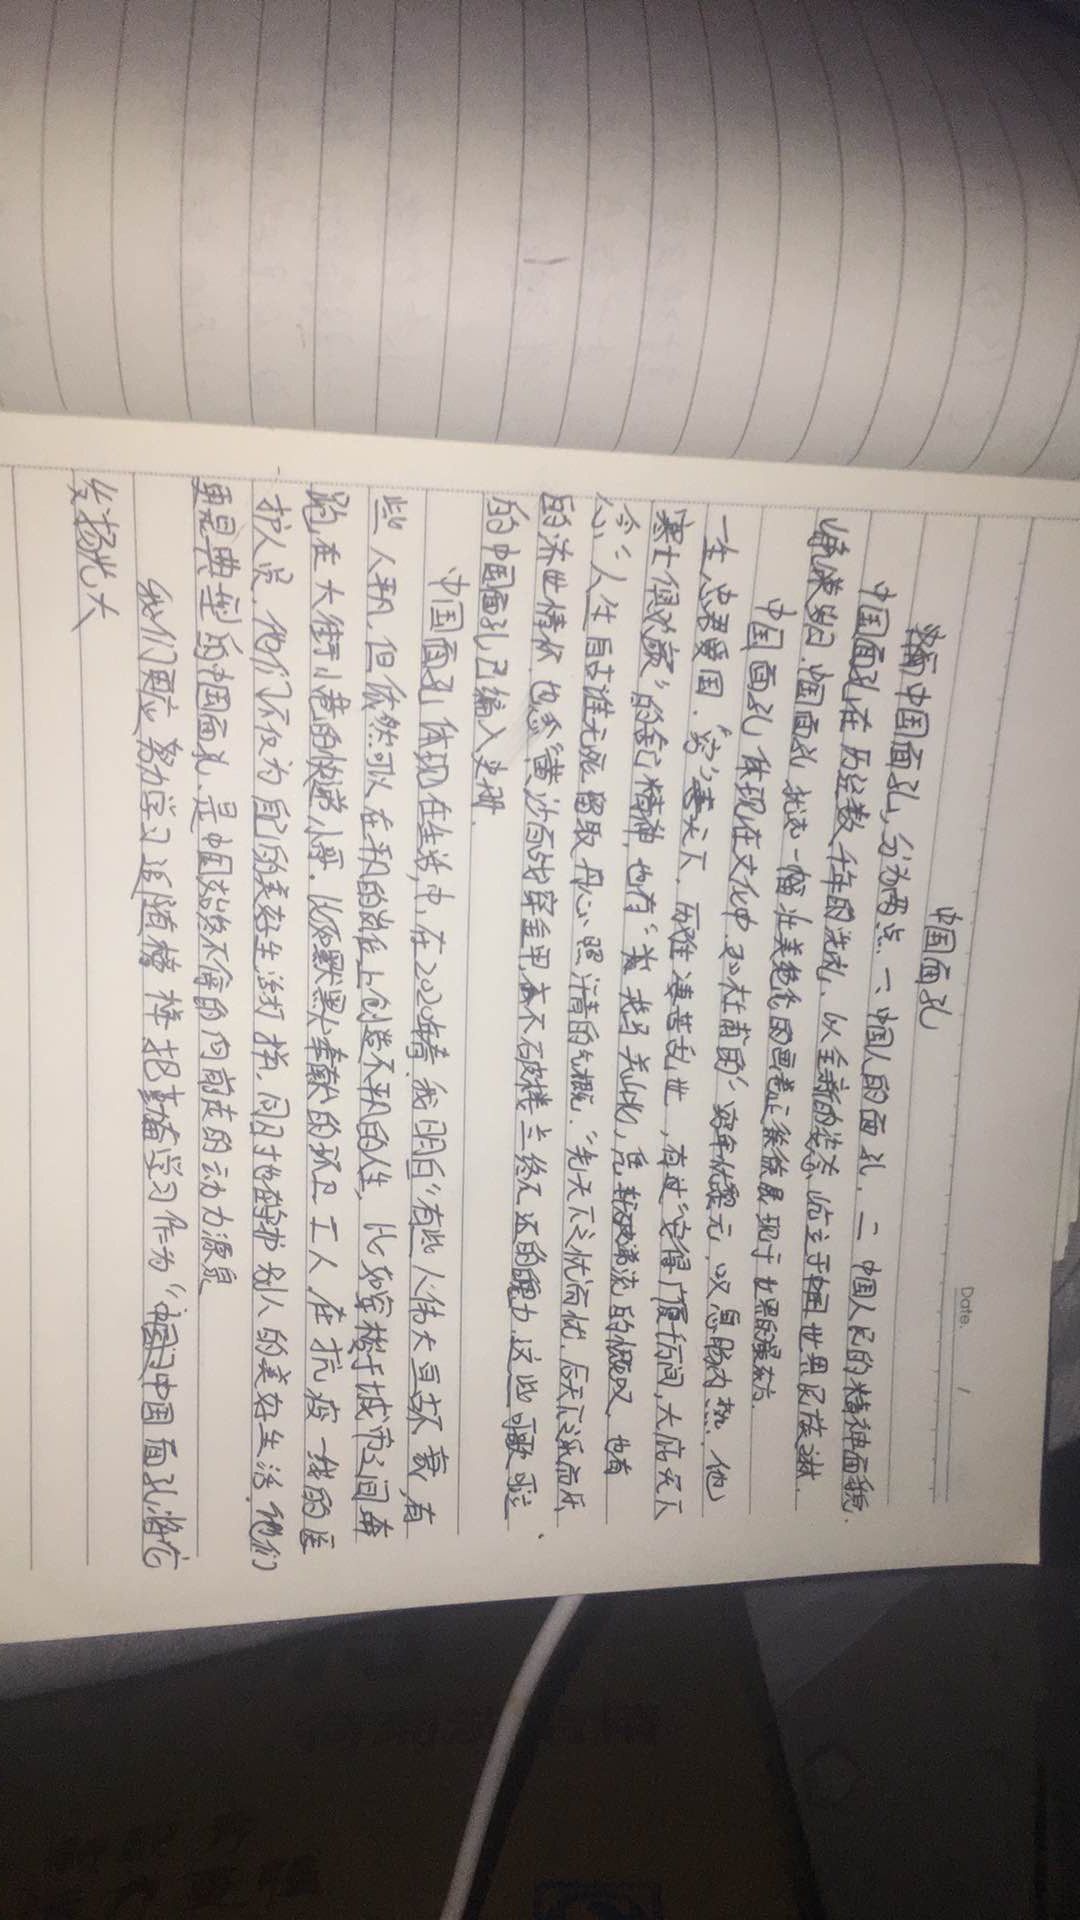 Date.
中国面孔
中国面孔,分为两点.一、中国人的面孔,二、中国人民的精神面貌.
中国面孔在历经数千年的洗礼,以全新的姿态屹立于中国世界民族
中国面孔犹如一幅壮美绝伦的画卷正徐徐展现于世界的
中国面孔体现在文化中.如杜甫的"穷年忧黎元,叹息肠内热.他
一生忠君爱国."穷"妻天下.而雅凄苦乱世,有过"安得广厦千万间,大庇天下
寒士俱欢颜"的舍己精神,也有"戎马关山北,凭轩涕泗流的慨叹.也有
"人生自古谁无死.留取丹心照汗青的气概."先天下之忧而忧.后天下之乐而乐
的济世情怀.也有"黄沙百战穿金甲,不破楼兰终不还的魄力.这些可歌可泣
的中国面孔已编入史册.
中国面孔体现在生活中,在2020年看.我明白"有些人伟大且坏衰,有
些人平凡.但依然可以在平凡的岗位上创造不平凡的人生,比如穿梭于城市之间奔
跑在大街小巷的快递小哥.比如默默奉献的环卫工人在抗疫一线的医
护人员.他们不仅为自己的美好生活打拼,同时也在守护别人的美好生活.他们
更是典型的中国面孔.是中国始终不停的向前走的动力源泉
我们更应努力学习追随榜样把勤奋学习作为"中国"中国面孔将它
发扬光大